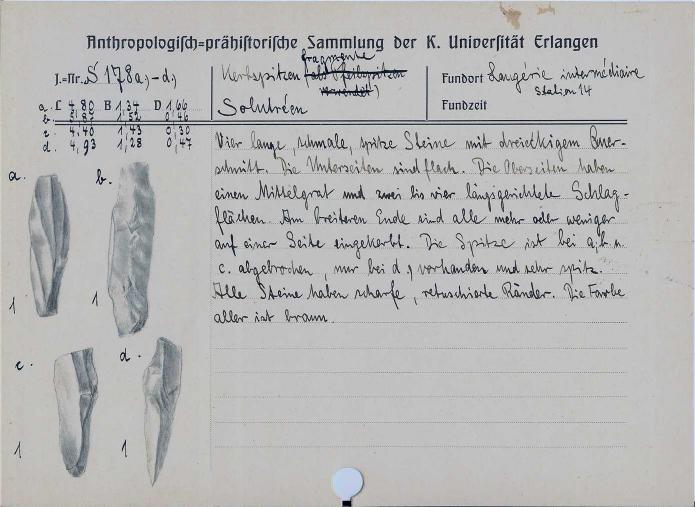 Anthropologisch=prähistorische Sammlung der K. Universität Erlangen
J.=Nr. S 178 a,-d,
fragmente
Kerbspitzen (als Pfeilspitzen
verwendet)
Solutréen
Fundort Laugérie intermédiaire
Station 14
Fundzeit
a. L 4,80 B 1,34 D 1,66
b. 1,52 0,46
c. 4,40 1,43 0,30
d. 4,93 1,28 0,47
Vier lange, schmale, spitze Steine mit dreieckigem Quer-
schnitt. Die Unterseiten sind flach. Die Oberseiten haben
einen Mittelgrat und zwei bis vier längsgerichtete Schlag-
flächen. Am breiteren Ende sind alle mehr oder weniger
auf einer Seite eingekerbt. Die Spitze ist bei a, b u.
c. abgebrochen, nur bei d, vorhanden und sehr spitz.
Alle Steine haben scharfe, retuschierte Ränder. Die Farbe
aller ist braun.
a. b.
1 1
c. d.
1 1